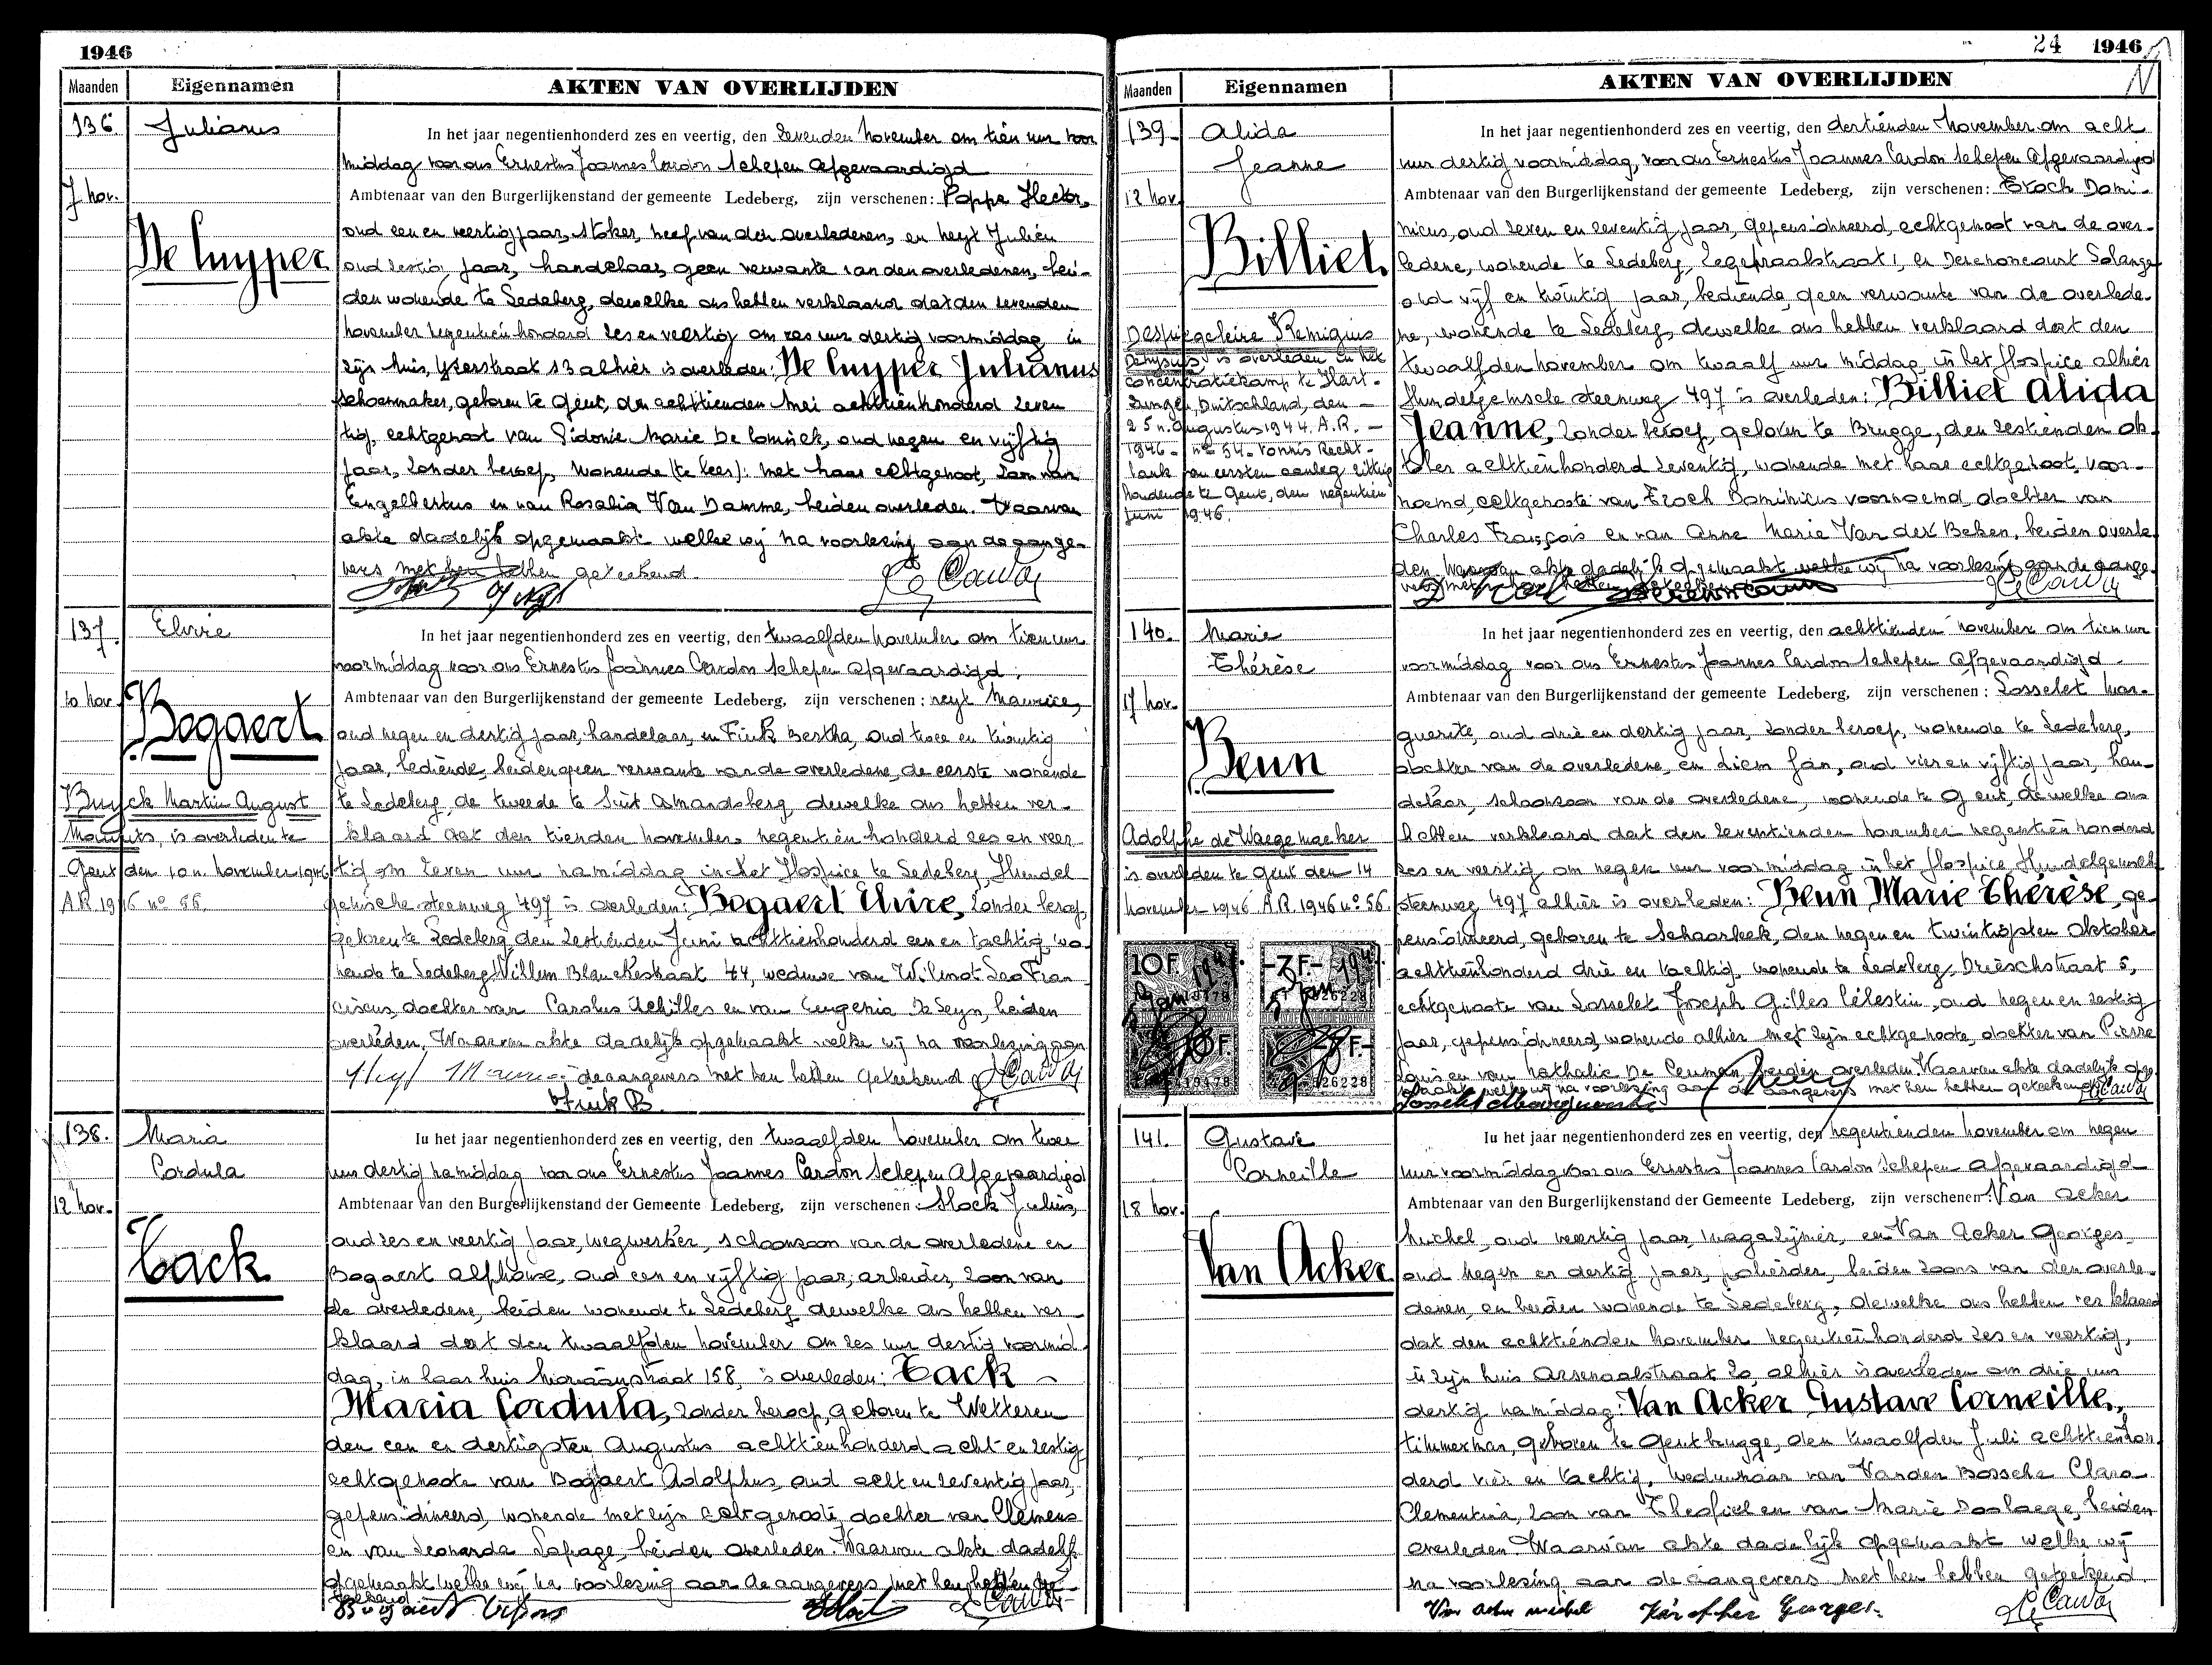 1946
Maanden Eigennamen AKTEN VAN OVERLIJDEN
136.
7 hov.
Julianus
De Cuyper
In het jaar negentienhonderd zes en veertig, den zevenden november om tien uur voor
middag voor ons Ernestus Joannes Cardon Schepen Afgevaardigd
Ambtenaar van den Burgerlijkenstand der gemeente Ledeberg, zijn verschenen: Poppe Hector,
oud een en veertig jaar, stoker, neef van den overledenen, en heyt Juliën
oud zestig jaar, handelaar, geen verwante van den overledenen, bei-
den wonende te Ledeberg, dewelke ons hebben verklaard dat den zevenden
november negentien honderd zes en veertig om zes uur dertig voormiddag in
zijn huis, Yzerstraat 13 alhier is overleden: De Cuyper Julianus
schoenmaker, geboren te Gent, den achttienden Mei achttienhonderd zeven
tig, echtgenoot van Sidonie Marie De
oud negen en vijftig
jaar, zonder beroep, wonende (te lees): met haar echtgenoot, zoon van
Engelbertus en van Rosalia Van Damme, beiden overleden. Waarvan
akte dadelijk opgemaakt welke wij na voorlezing aan de aange-
vers met hen hebben geteekend.
E Cardon
137.
10 hov
Elvire
Bogaert
Buyck Martin August
Maurits, is overleden te
Gent den 10n november 1946
A.R. 1946 no 55.
In het jaar negentienhonderd zes en veertig, den twaalfden november om tien uur
voormiddag voor ons Ernestus Joannes Cardon Schepen Afgevaardigd,
Ambtenaar van den Burgerlijkenstand der gemeente Ledeberg, zijn verschenen: neyt Maurice,
oud negen en dertig jaar, handelaar, en Fink Bertha, oud twee en twintig
jaar, bediende, beiden geen verwante van de overledene, de eerste wonende
te Ledeberg, de tweede te Sint Amandsberg dewelke ons hebben ver-
klaard dat den tienden november negentien honderd zes en veer
tig om zeven uur namiddag in het Hospice te Ledeberg, Hundel
gemsche steenweg 497 is overleden: Bogaert Elvire, zonder beroep,
geboren te Ledeberg den zestienden Juni achttienhonderd een en tachtig, wo-
nende te Ledeberg Willem Blanckestraat 44, weduwe van Wilmot Leo Fran
ciscus, dochter van Carolus Achilles en van Eugenia De Seyn, beiden
overleden. Waarvan akte dadelijk opgemaakt welke wij na voorlezing aan
de aangevers met hen hebben geteekend E Cardon
Fink B.
138.
12 hov.
Maria
Cordula
Tack
In het jaar negentienhonderd zes en veertig, den twaalfden november om twee
uur dertig namiddag voor ons Ernestus Joannes Cardon Schepen Afgevaardigd
Ambtenaar van den Burgerlijkenstand der Gemeente Ledeberg, zijn verschenen: Stock Julius,
oud zes en veertig jaar, wegwerker, schoonzoon van de overledene en
Bogaert Alphonse, oud een en vijftig jaar, arbeider, zoon van
de overledene, beiden wonende te Ledeberg dewelke ons hebben ver
klaard dat den twaalfden november om zes uur dertig voormid
dag, in haar huis
158, is overleden: Tack
Maria Cordula, zonder beroep, geboren te Wetteren
den een en dertigsten Augustus achttienhonderd acht en zestig
echtgenoote van Bogaert Adolphus, oud acht en zeventig jaar,
gepensioneerd, wonende met zijn echtgenoote, dochter van Clemens
en van Leonarda Lepage, beiden overleden. Waarvan akte dadelijk
opgemaakt welke wij na voorlezing aan de aangevers met hen hebben ge-
teekend
24 1946
N
Maanden Eigennamen AKTEN VAN OVERLIJDEN
139.
12 hov.
Alida
Jeanne
Billiet
Despiegeleire Remigius
Denysius is overleden in het
concentratiekamp te Hart-
Duitschland, den
25n. Augustus 1944. A.R. -
1946 - no 54. Vonnis Recht-
bank van eersten aanleg zitting
houdende te Gent, den negentien
Juni 1946.
In het jaar negentienhonderd zes en veertig, den dertienden November om acht
uur dertig voormiddag, voor ons Ernestus Joannes Cardon Schepen Afgevaardigd
Ambtenaar van den Burgerlijkenstand der gemeente Ledeberg, zijn verschenen: Troch Domi-
nicus, oud zeven en zeventig jaar, gepensioneerd, echtgenoot van de over-
ledene, wonende te Ledeberg, Zegepraalstraat 1, en Derenoncourt Solange
oud vijf en twintig jaar, bediende, geen verwante van de overlede-
ne, wonende te Ledeberg, dewelke ons hebben verklaard dat den
twaalfden november om twaalf uur middag in het Hospice alhier
Hundelgemsche steenweg 497 is overleden: Billiet Alida
Jeanne, zonder beroep, geboren te Brugge, den zestienden ok
tober achttienhonderd zeventig, wonende met haar echtgenoot, voor-
noemd, echtgenoote van Troch Dominicus voornoemd, dochter van
Charles François en van Anne Marie Van der Beken, beiden overle
den. Waarvan akte dadelijk opgemaakt welke wij na voorlezing aan de aange-
vers met hen hebben geteekend
140.
17 hov.
Marie
Thérèse
Beun
Adolphe de Waegemaeker
is overleden te Gent den 14
november 1946 A.R. 1946 no 56.
10F. -7F.-
In het jaar negentienhonderd zes en veertig, den achttienden november om tien uur
voormiddag voor ons Ernestus Joannes Cardon Schepen Afgevaardigd
Ambtenaar van den Burgerlijkenstand der gemeente Ledeberg, zijn verschenen: Losselet Mar-
guerite, oud drie en dertig jaar, zonder beroep, wonende te Ledeberg,
dochter van de overledene, en Diem Jan, oud vier en vijftig jaar, han-
delaar, schoonzoon van de overledene, wonende te Gent, dewelke ons
hebben verklaard dat den zeventienden november negentien honderd
zes en veertig om negen uur voormiddag in het Hospice Hundelgemsche
steenweg 497 alhier is overleden: Beun Marie Thérèse, ge-
pensioneerd, geboren te Schaarbeek, den negen en twintigsten Oktober
achttienhonderd drie en tachtig, wonende te Ledeberg, Drieschstraat 5,
echtgenoote van Losselet Joseph Gilles Célestin, oud negen en zestig
jaar, gepensioneerd, wonende alhier met zijn echtgenoote, dochter van Pierre
Louis en van Nathalie De Ceunen, beiden overleden. Waarvan akte dadelijk opge-
maakt welke wij na voorlezing aan de aangevers met hen hebben geteekend
141.
18 hov.
Gustave
Corneille
Van Acker
In het jaar negentienhonderd zes en veertig, den negentienden november om negen
uur voormiddag voor ons Ernestus Joannes Cardon Schepen Afgevaardigd
Ambtenaar van den Burgerlijkenstand der Gemeente Ledeberg, zijn verschenen: Van Acker
Michel, oud veertig jaar, magazijnier, en Van Acker Georges,
oud negen en dertig jaar,
beiden zoons van den overle-
denen, en beiden wonende te Ledeberg, dewelke ons hebben verklaard
dat den achttienden november negentien honderd zes en veertig,
in zijn huis Arsenaalstraat 20, alhier is overleden om drie uur
dertig namiddag: Van Acker Gustave Corneille,
timmerman, geboren te Gentbrugge, den twaalfden Juli achttienhon
derd vier en tachtig, weduwnaar van Vanden Bossche Clara
Clementina, zoon van Theofiel en van Marie Doolaege, beiden
overleden. Waarvan akte dadelijk opgemaakt welke wij
na voorlezing aan de aangevers met hen hebben geteekend.
Van Acker Michel Van Acker Georges E Cardon